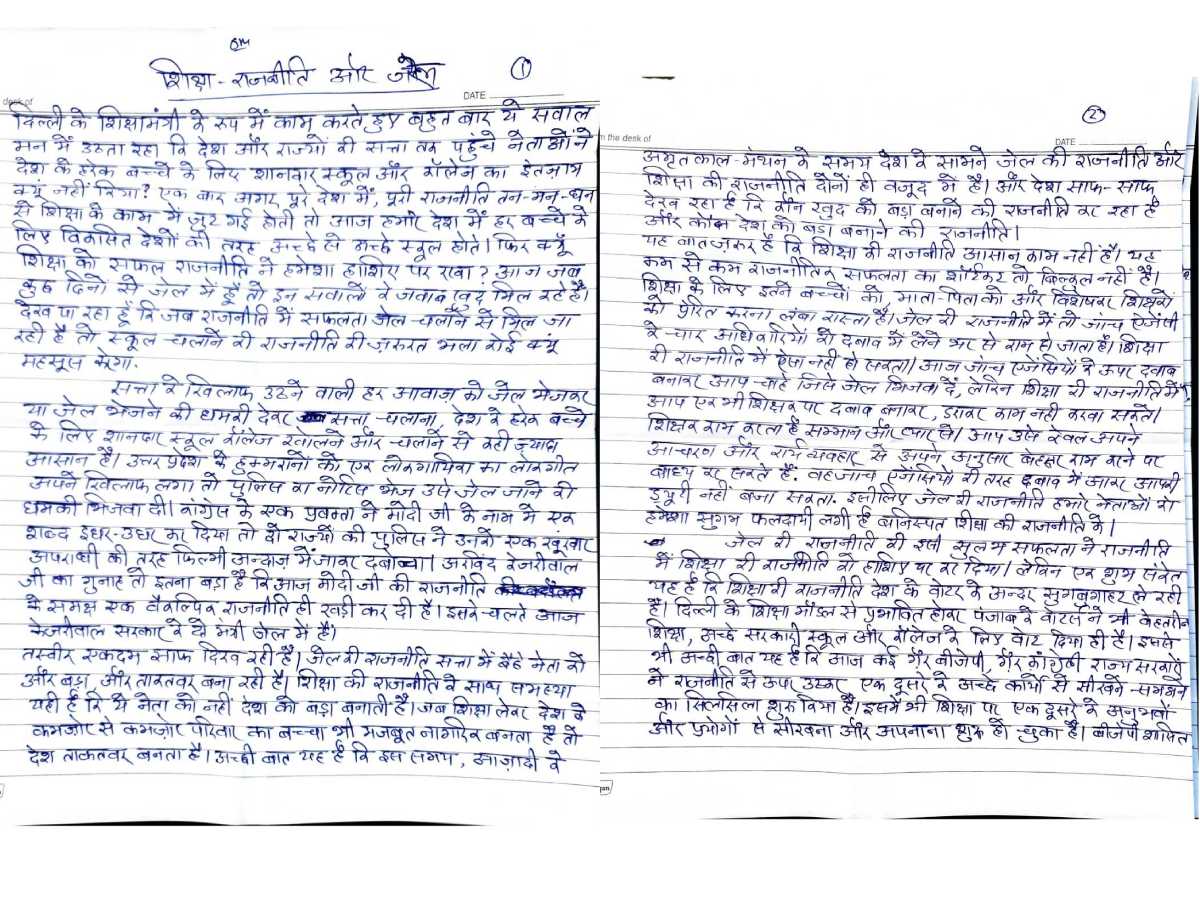 ॐ
शिक्षा - राजनीति और जेल
1
desk of
DATE
दिल्ली के शिक्षामंत्री के रूप में काम करते हुए बहुत बार ये सवाल
मन में उठता रहा कि देश और राज्यों की सत्ता तक पहुंचे नेताओं ने
देश के हरेक बच्चे के लिए शानदार स्कूल और कॉलेज का इंतज़ाम
क्यूं नहीं किया? एक बार अगर पूरे देश में, पूरी राजनीति तन-मन-धन
से शिक्षा के काम में जुट गई होती तो आज हमारे देश में हर बच्चे के
लिए विकसित देशों की तरह अच्छे से अच्छे स्कूल होते। फिर क्यूं
शिक्षा को सफल राजनीति ने हमेशा हाशिए पर रखा? आज जब
कुछ दिनों से जेल में हूँ तो इन सवालों के जवाब खुद मिल रहे हैं।
देख पा रहा हूँ कि जब राजनीति में सफलता जेल चलाने से मिल जा
रही है तो स्कूल चलाने की राजनीति की ज़रुरत भला कोई क्यूं
महसूस करेगा.
सत्ता के खिलाफ उठने वाली हर आवाज़ को जेल भेजकर
या जेल भेजने की धमकी देकर सत्ता चलाना, देश के हरेक बच्चे
के लिए शानदार स्कूल कॉलेज खोलने और चलाने से कहीं ज़्यादा
आसान है। उत्तर प्रदेश के हुक्मरानों को एक लोकगायिका का लोकगीत
अपने खिलाफ लगा तो पुलिस का नोटिस भेज उसे जेल जाने की
धमकी भिजवा दी। कांग्रेस के एक प्रवक्ता ने मोदी जी के नाम में एक
शब्द इधर-उधर कर दिया तो दो राज्यों की पुलिस ने उनको एक खूंखार
अपराधी की तरह फिल्मी अन्दाज़ में जाकर दबोचा। अरविंद केजरीवाल
जी का गुनाह तो इतना बड़ा है कि आज मोदी जी की राजनीति
के समक्ष एक वैकल्पिक राजनीति ही खड़ी कर दी है। इसके चलते आज
केजरीवाल सरकार के दो मंत्री जेल में हैं।
तस्वीर एकदम साफ दिख रही है। जेल की राजनीति सत्ता में बैठे नेता को
और बड़ा, और ताकतवर बना रही है। शिक्षा की राजनीति के साथ समस्या
यही है कि ये नेता को नहीं देश को बड़ा बनाती है। जब शिक्षा लेकर देश के
कमजोर से कमज़ोर परिवार का बच्चा भी मजबूत नागरिक बनता है तो
देश ताकतवर बनता है। अच्छी बात यह है कि इस समय, आज़ादी के
2
m the desk of
DATE
अमृत काल-मंथन के समय देश के सामने जेल की राजनीति और
शिक्षा की राजनीति दोनों ही वजूद में है। और देश साफ-साफ
देख रहा है कि कौन खुद को बड़ा बनाने की राजनीति कर रहा है
और कौन देश को बड़ा बनाने की राजनीति।
यह बात ज़रूर है कि शिक्षा की राजनीति आसान काम नहीं है। यह
कम से कम राजनीतिक सफलता का शॉर्टकट तो बिल्कुल नहीं है।
शिक्षा के लिए इतने बच्चों को, माता-पिता को और विशेषकर शिक्षकों
को प्रेरित करना लंबा रास्ता है। जेल की राजनीति में तो जांच ऐजेंसी
के चार अधिकारियों को दबाव में लेने भर से काम हो जाता है। शिक्षा
की राजनीति में ऐसा नहीं हो सकता। आज जांच एजेंसियों के ऊपर दबाव
बनाकर आप चाहे जिसे जेल भिजवा दें, लेकिन शिक्षा की राजनीति में
आप एक भी शिक्षक पर दबाव बनाकर, डराकर काम नहीं करवा सकते।
शिक्षक काम करता है सम्मान और प्यार से। आप उसे केवल अपने
आचरण और कार्य व्यवहार से अपने अनुसार बेहतर काम करने पर
बाध्य कर सकते हैं. वह जांच एजेंसियों की तरह दबाव में आकर आपकी
ड्यूटी नहीं बजा सकता. इसीलिए जेल की राजनीति हमारे नेताओं को
हमेशा सुगम फलदायी लगी है बनिस्पत शिक्षा की राजनीति के।
जेल की राजनीति की इसी सुलभ सफलता ने राजनीति
में शिक्षा की राजनीति को हाशिए पर कर दिया। लेकिन एक शुभ संकेत
यह है कि शिक्षा की राजनीति देश के वोटर के अन्दर सुगबुगाहट ले रही
है। दिल्ली के शिक्षा मॉडल से प्रभावित होकर पंजाब के वोटर्स ने भी बेहतरीन
शिक्षा, अच्छे सरकारी स्कूल और कॉलेज के लिए वोट दिया ही है। इससे
भी अच्छी बात यह है कि आज कई गैर बीजेपी, गैर कांग्रेसी राज्य सरकारों
ने राजनीति से ऊपर उठकर एक दूसरे के अच्छे कार्यों से सीखने-समझने
का सिलसिला शुरू किया है। इसमें भी शिक्षा पर एक दूसरे के अनुभवों
और प्रयोगों से सीखना और अपनाना शुरू हो चुका है। बीजेपी शासित